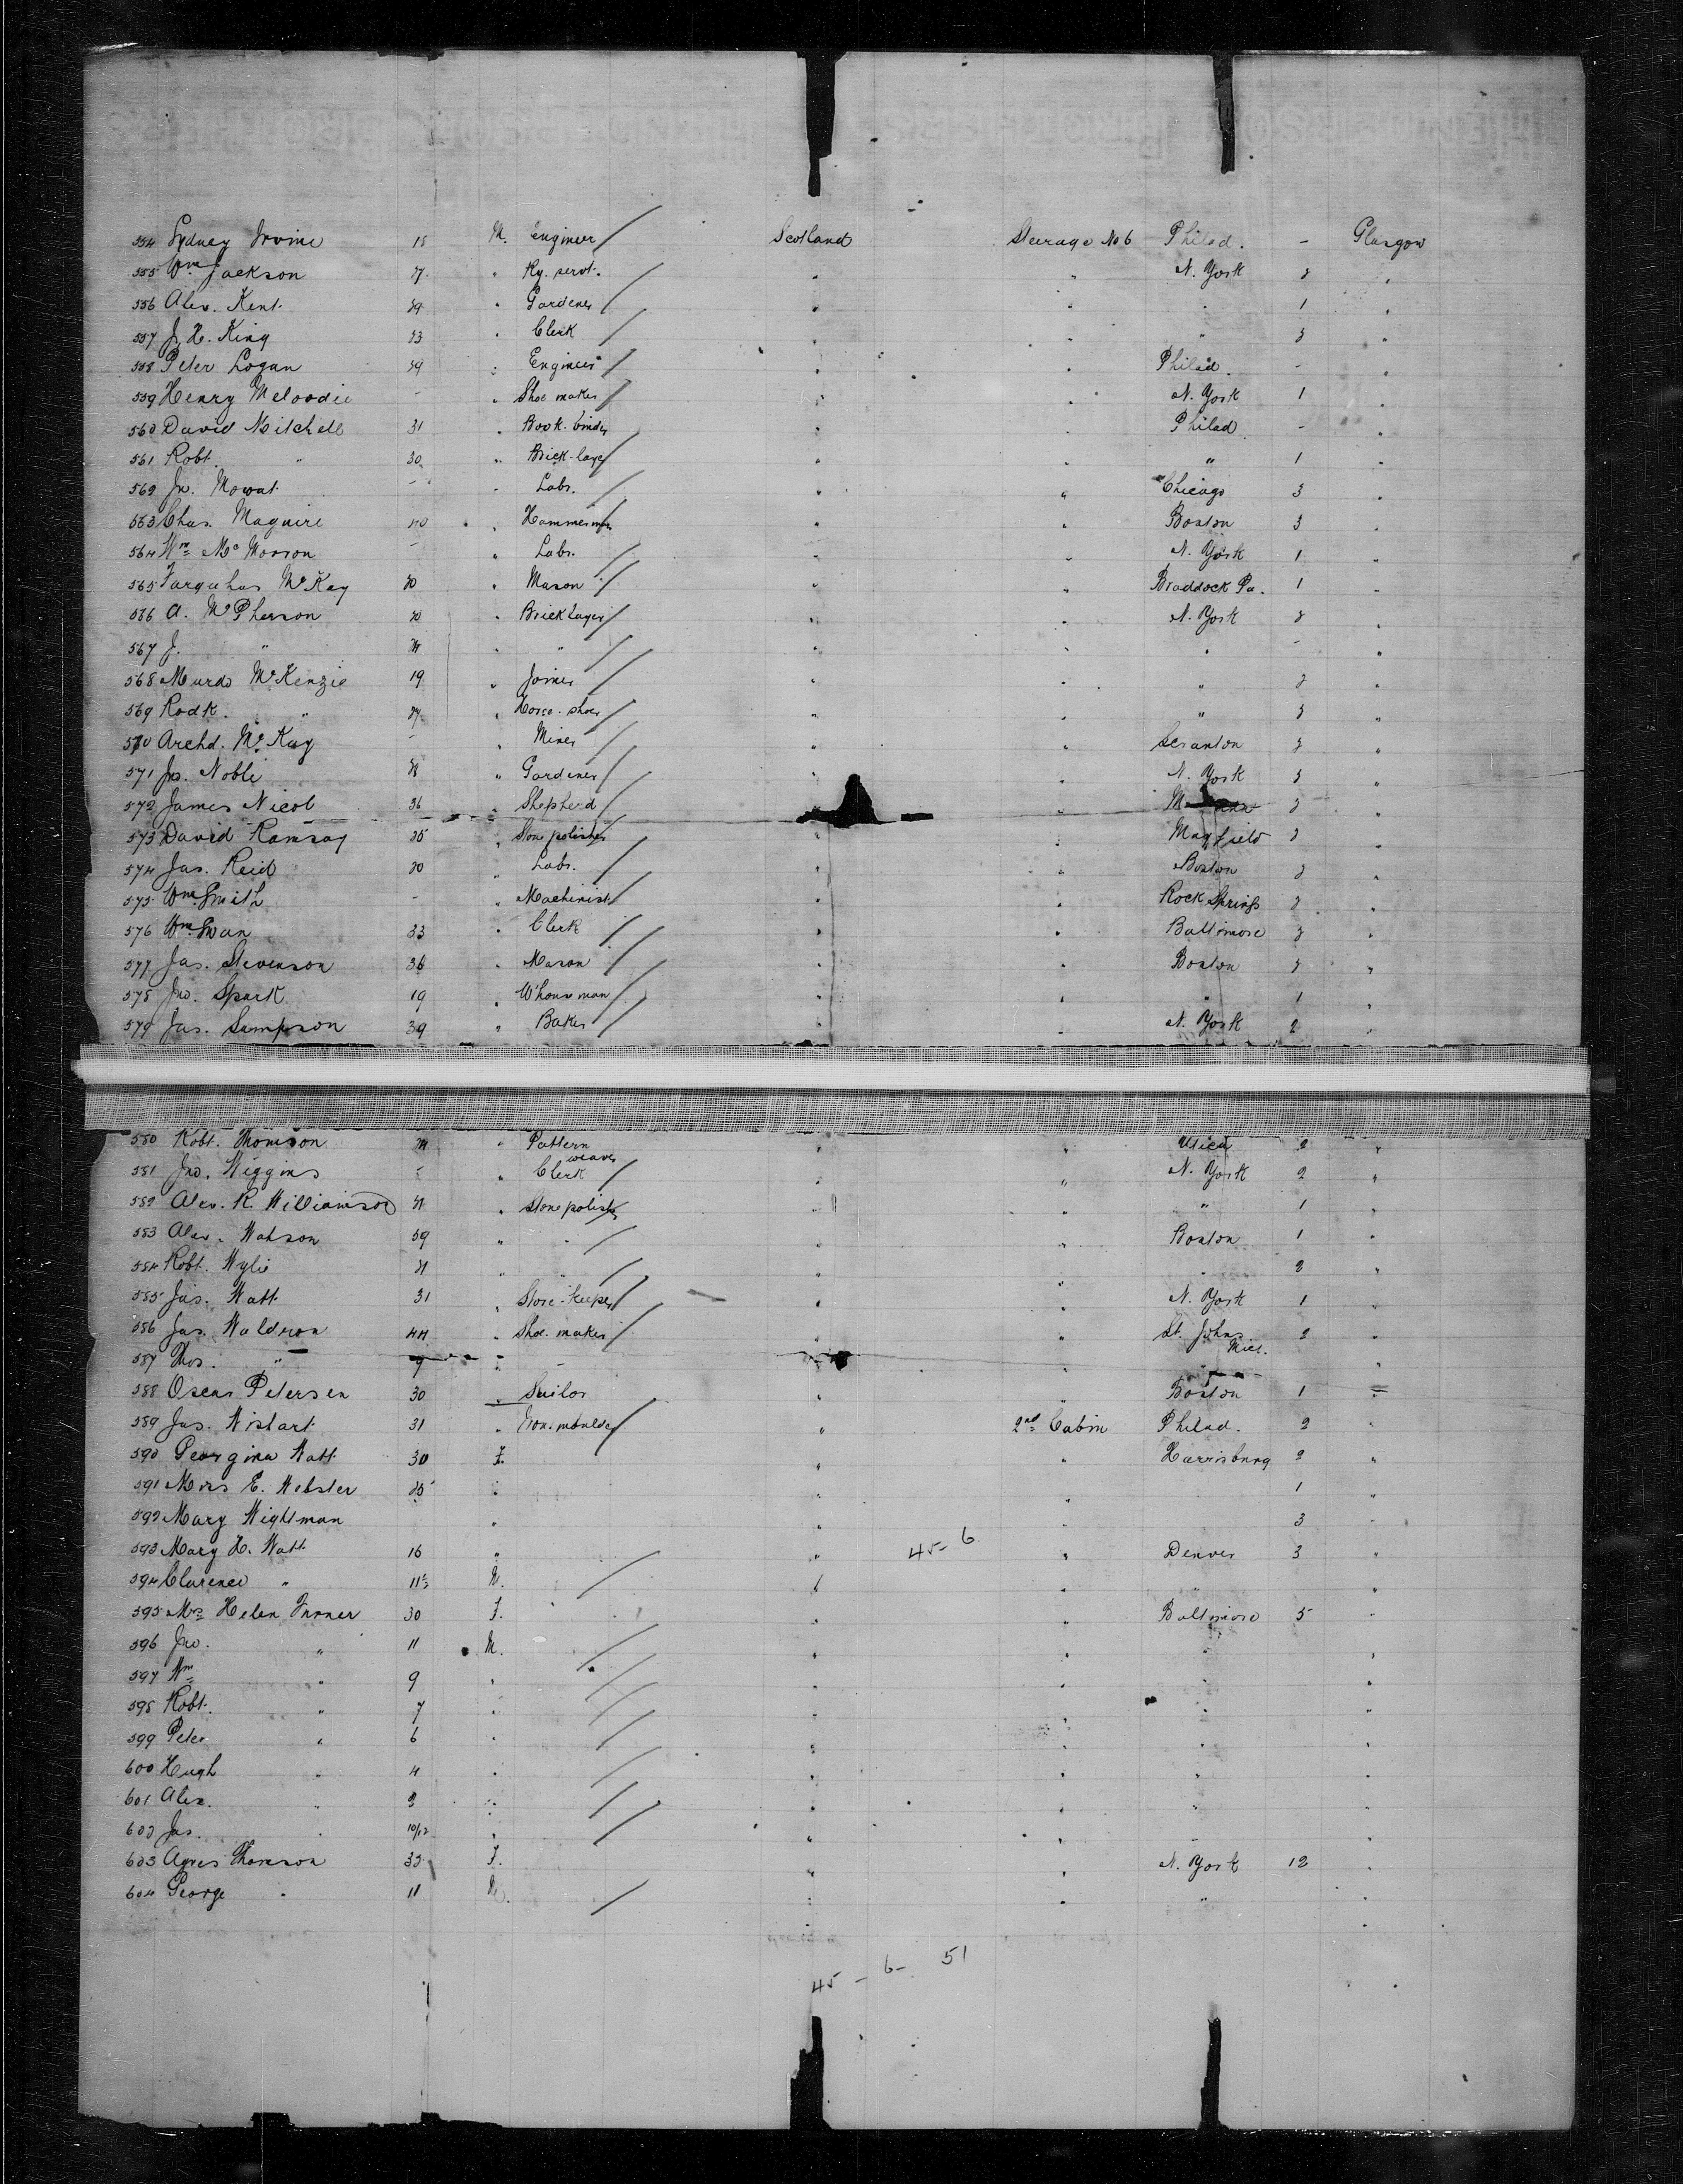 554 Sydney Irvine 18 M. Engineer Scotland Steerage No 6 Philad. - Glasgow
555 Wm Jackson 27 " Ry. servt. " " N. York 2 "
556 Alex. Kent 29 " Gardener " " " 1 "
557 J. H. King 23 " Clerk " " " 3 "
558 Peter Logan 29 " Engineer " " Philad. - "
559 Henry - " Shoe maker " " N. York 1 "
560 David Mitchell 31 " Book-binder " " Philad. - "
561 Robt. " 30 " Brick-layer " " " 1 "
562 Jn. Mowat - " Labr. " " Chicago 3 "
563 Chas. Maguire 40 " Hammerman " " Boston 3 "
564 Wm - " Labr. " " N. York 1 "
565 Farquhar McKay 20 " Mason " " Braddock Pa. 1 "
566 A. McPherson 20 " Bricklayer " " N. York 2 "
567 J. " 24 " " " " " - "
568 Murdo McKenzie 19 " Joiner " " " 2 "
569 Rodk. " 27 " Horse-shoer " " " 3 "
570 Archd. McKay - " Miner " " Scranton 3 "
571 Jn. Noble " Gardener " " N. York 3 "
572 James Nicol 36 " Shepherd " " 2 "
573 David Ramsay 25 " Stone polisher " " Mayfield 2 "
574 Jas. Reid 20 " Labr. " " Boston 2 "
575 Wm Smith - " Machinist " " Rock Springs 2 "
576 Wm Swan 33 " Clerk " " Baltimore 3 "
577 Jas. Stevenson 36 " Mason " " Boston 3 "
578 Jno. Spark 19 " W'houseman " " " 1 "
579 Jas. Sampson 39 " Baker " " N. York 2 "
580 Robt. Thomson 24 " Pattern weaver " " Utica 2 "
581 Jno. Wiggins " Clerk " " N. York 2 "
582 Alex. R. Williamson 21 " Stone polisher " " " 1 "
583 Alex. Watson 59 " " " " Boston 1 "
584 Robt. Wylie 21 " " " " " 2 "
585 Jas. Watt 31 " Store-keeper " " N. York 1 "
586 Jas. Waldron 44 " Shoe-maker " " St. Johns Mich. 2 "
587 Thos. " 9 " - " " " "
588 Oscar Petersen 30 " Sailor " " Boston 1 "
589 Jas. Wishart 31 " Iron moulder " 2nd Cabin Philad. 2 "
590 Georgina Watt 30 F. " " Harrisburg 2 "
591 Miss E. Webster 25 " " " 1 "
592 Mary Wightman " " " 3 "
593 Mary H. Watt 16 " " 45-6 " Denver 3 "
594 Clarence " 11½ M. " " " "
595 Mrs Helen Turner 30 F. " " Baltimore 5 "
596 Jno. " 11 M. " " " "
597 Wm " 9 " " " " "
598 Robt. " 7 " " " " "
599 Peter " 6 " " " " "
600 Hugh " 4 " " " " "
601 Alex. " 3 " " " " "
602 Jas. " 10/12 " " " " "
603 Agnes Thomson 32 F. " " N. York 12 "
604 George " 11 M. " " " "
45 - 6 - 51